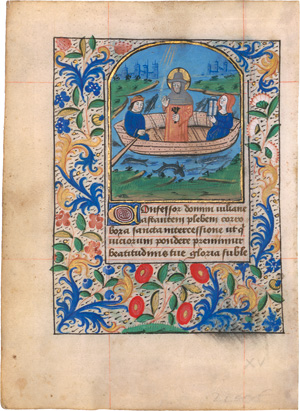 Confessor domini iuliane
astantem plebem corro
bora sancta intercessione ut q
uiciorum pondere premimur
beatitudinis tue gloria suble